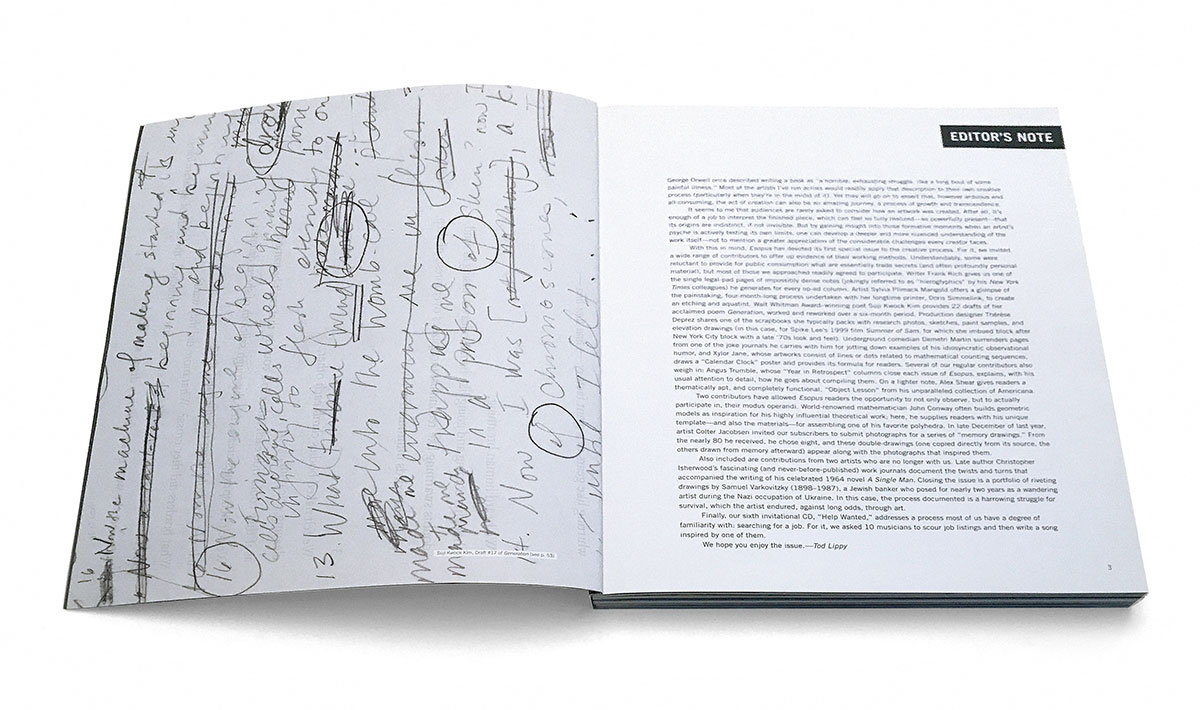 Now the madness of making started
beginning
13. Wind
into the
made me
making
14. Now I was
Suji Kwock Kim, Draft #12 of Generation (see p. 53)
EDITOR'S NOTE
George Orwell once described writing a book as "a horrible, exhausting struggle, like a long bout of some
painful illness." Most of the artists I've run across would readily apply that description to their own creative
process (particularly when they're in the midst of it). Yet they will go on to assert that, however arduous and
all-consuming, the act of creation can also be an amazing journey, a process of growth and transcendence.
It seems to me that audiences are rarely asked to consider how an artwork was created. After all, it's
enough of a job to interpret the finished piece, which can feel so fully realized—so powerfully present—that
its origins are indistinct, if not invisible. But by gaining insight into those formative moments when an artist's
psyche is actively testing its own limits, one can develop a deeper and more nuanced understanding of the
work itself—not to mention a greater appreciation of the considerable challenges every creator faces.
With this in mind, Esopus has devoted its first special issue to the creative process. For it, we invited
a wide range of contributors to offer up evidence of their working methods. Understandably, some were
reluctant to provide for public consumption what are essentially trade secrets (and often profoundly personal
material), but most of those we approached readily agreed to participate. Writer Frank Rich gives us one of
the single legal-pad pages of impossibly dense notes (jokingly referred to as "hieroglyphics" by his New York
Times colleagues) he generates for every op-ed column. Artist Sylvia Plimack Mangold offers a glimpse of
the painstaking, four-month-long process undertaken with her longtime printer, Doris Simmelink, to create
an etching and aquatint. Walt Whitman Award-winning poet Suji Kwock Kim provides 22 drafts of her
acclaimed poem Generation, worked and reworked over a six-month period. Production designer Thérèse
Deprez shares one of the scrapbooks she typically packs with research photos, sketches, paint samples, and
elevation drawings (in this case, for Spike Lee's 1999 film Summer of Sam, for which she imbued block after
New York City block with a late '70s look and feel). Underground comedian Demetri Martin surrenders pages
from one of the joke journals he carries with him for jotting down examples of his idiosyncratic observational
humor, and Xylor Jane, whose artworks consist of lines or dots related to mathematical counting sequences,
draws a "Calendar Clock" poster and provides its formula for readers. Several of our regular contributors also
weigh in: Angus Trumble, whose "Year in Retrospect" columns close each issue of Esopus, explains, with his
usual attention to detail, how he goes about compiling them. On a lighter note, Alex Shear gives readers a
thematically apt, and completely functional, "Object Lesson" from his unparalleled collection of Americana.
Two contributors have allowed Esopus readers the opportunity to not only observe, but to actually
participate in, their modus operandi. World-renowned mathematician John Conway often builds geometric
models as inspiration for his highly influential theoretical work; here, he supplies readers with his unique
template—and also the materials—for assembling one of his favorite polyhedra. In late December of last year,
artist Colter Jacobsen invited our subscribers to submit photographs for a series of "memory drawings." From
the nearly 80 he received, he chose eight, and these double-drawings (one copied directly from its source, the
others drawn from memory afterward) appear along with the photographs that inspired them.
Also included are contributions from two artists who are no longer with us. Late author Christopher
Isherwood's fascinating (and never-before-published) work journals document the twists and turns that
accompanied the writing of his celebrated 1964 novel A Single Man. Closing the issue is a portfolio of riveting
drawings by Samuel Varkovitzky (1898–1987), a Jewish banker who posed for nearly two years as a wandering
artist during the Nazi occupation of Ukraine. In this case, the process documented is a harrowing struggle for
survival, which the artist endured, against long odds, through art.
Finally, our sixth invitational CD, "Help Wanted," addresses a process most of us have a degree of
familiarity with: searching for a job. For it, we asked 10 musicians to scour job listings and then write a song
inspired by one of them.
We hope you enjoy the issue.—Tod Lippy
3